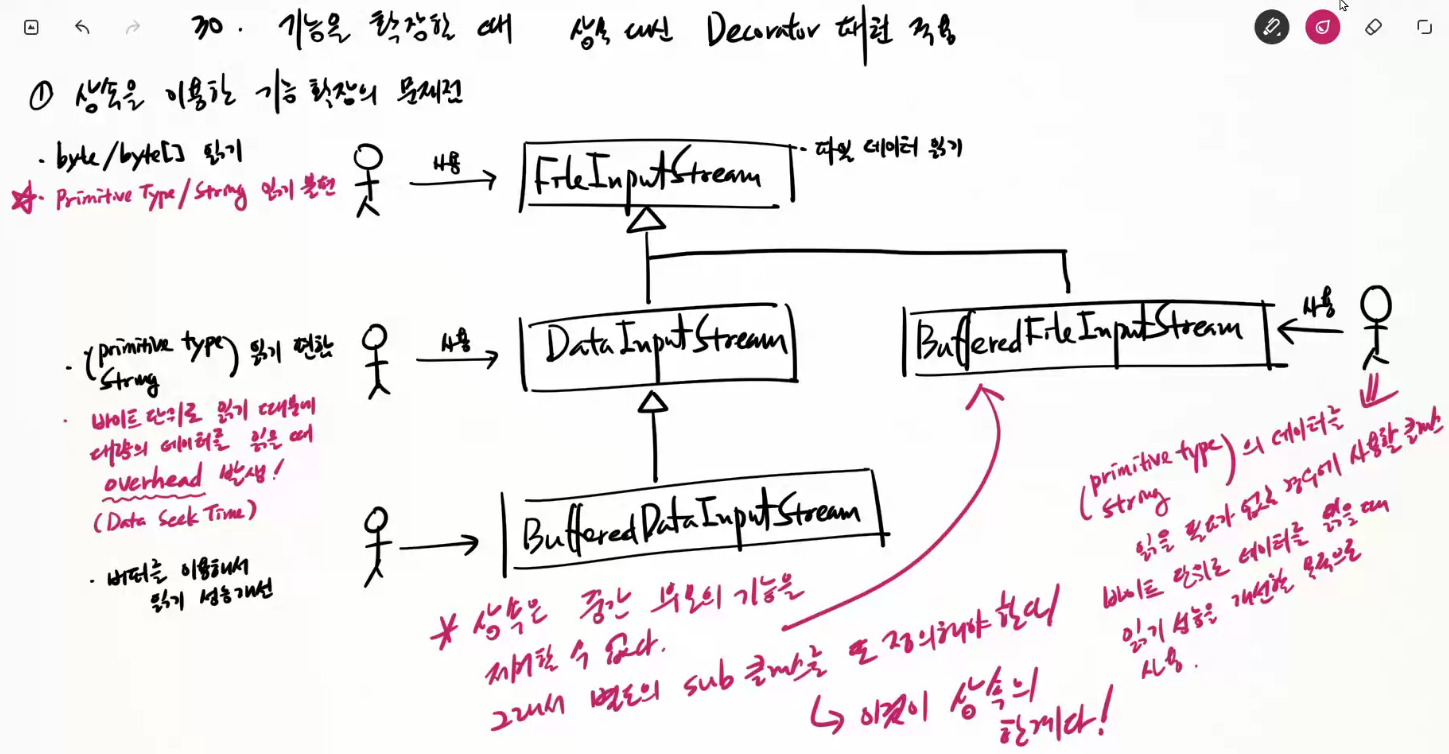 30. 기능을 확장할 때 상속 대신 Decorator 패턴 적용
① 상속을 이용한 기능 확장의 문제점
· byte/byte[] 읽기
☆· Primitive Type/String 읽기 불편
사용
FileInputStream
· 파일 데이터 읽기
· (primitive type
String) 읽기 편함
사용
DataInputStream
BufferedFileInputStream
사용
· 바이트 단위로 읽기 때문에
대량의 데이터를 읽을 때
overhead 발생!
(Data Seek Time)
BufferedDataInputStream
· 버퍼를 이용해서
읽기 성능개선
* 상속은 중간 부모의 기능을
제거할 수 없다.
그래서 별도의 sub 클래스를 또 정의해야 한다
↳ 이것이 상속의
한계다!
(primitive type
string)의 데이터를
읽을 필요가 없는 경우에 사용할 클래스
바이트 단위로 데이터를 읽을 때
읽기 성능을 개선할 목적으로
사용.